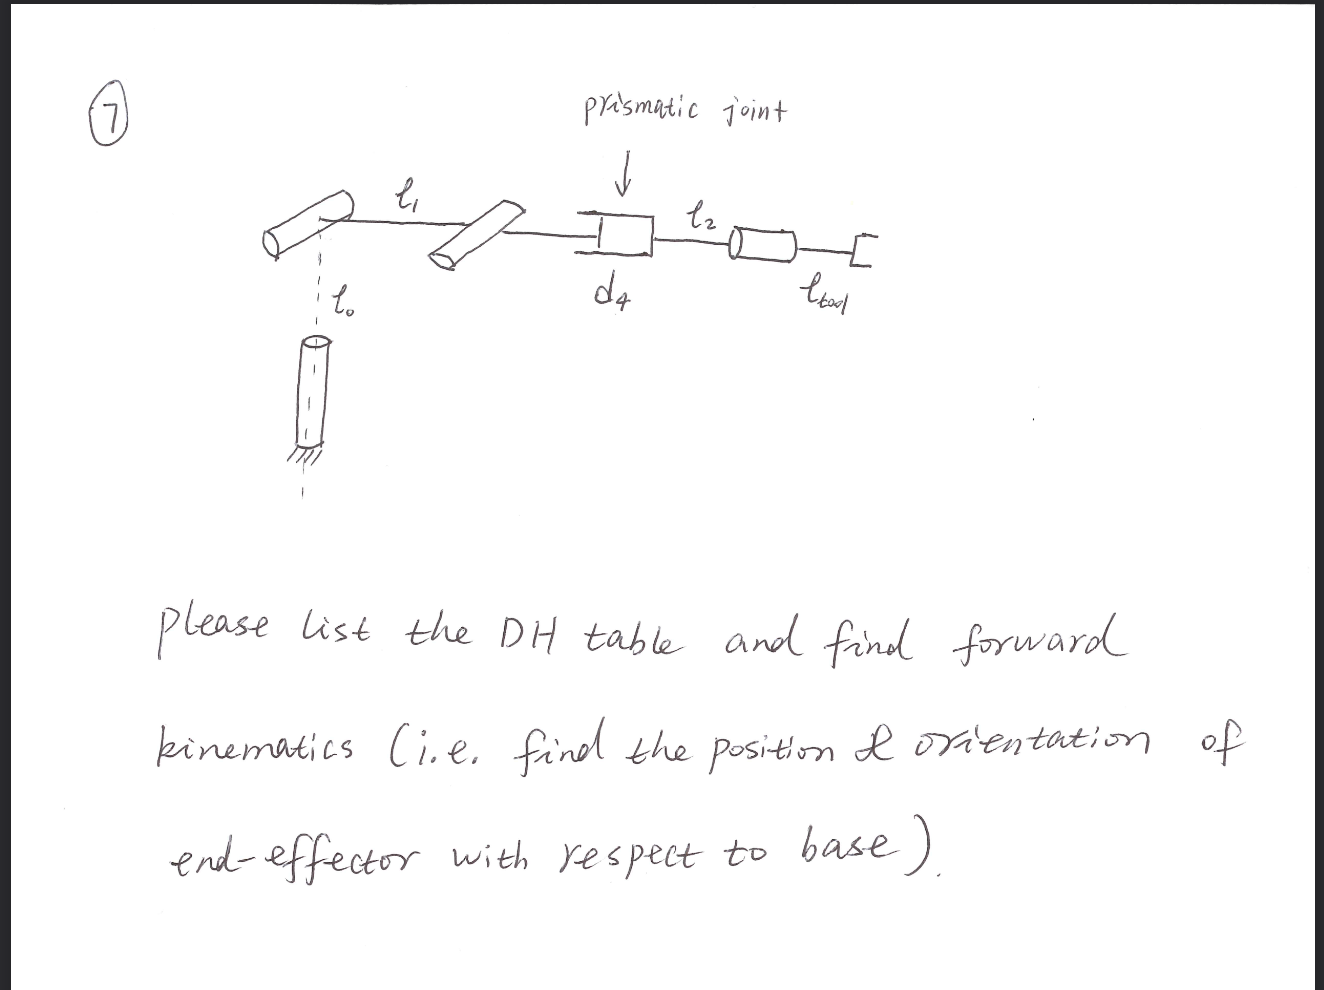 7
prismatic joint
l₁
l₂
l₀
d₄
l_tool
please list the DH table and find forward
kinematics (i.e. find the position & orientation of
end-effector with respect to base).